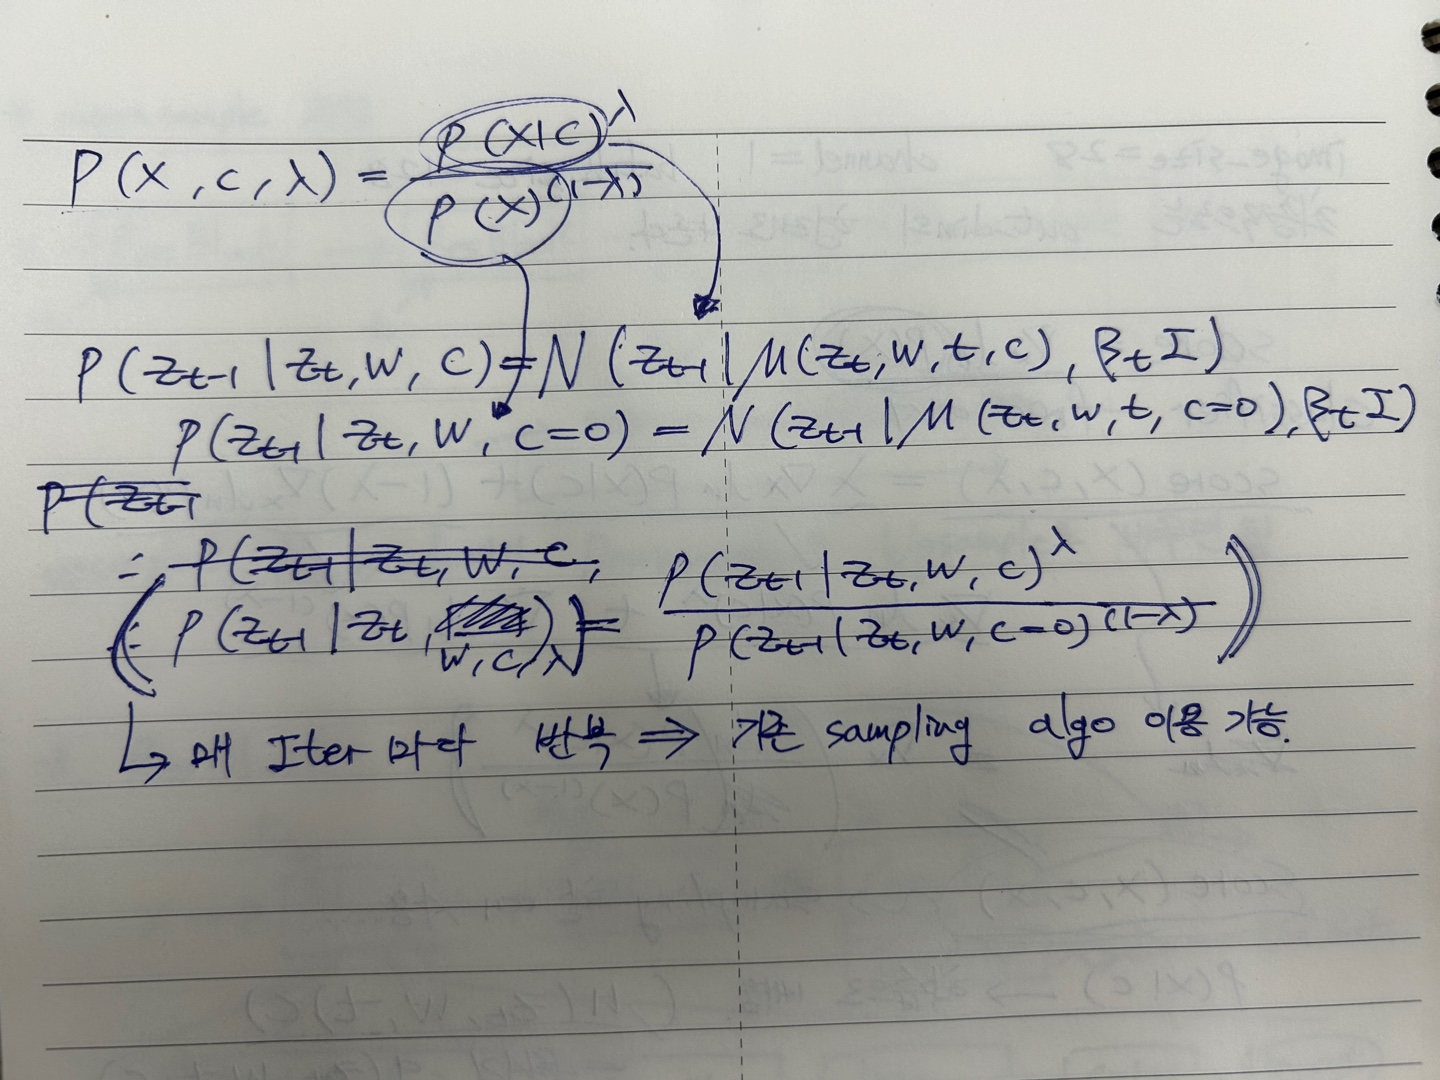 P(x, c, λ) = P(x|c)^λ / P(x)^(1-λ)
P(z_{t-1} | z_t, w, c) = N(z_{t-1} | μ(z_t, w, t, c), β_t I)
P(z_{t-1} | z_t, w, c=0) = N(z_{t-1} | μ(z_t, w, t, c=0), β_t I)
P(z_{t-1}
∴ P(z_{t-1} | z_t, w, c,
(∴ P(z_{t-1} | z_t, w, c, λ) = P(z_{t-1} | z_t, w, c)^λ / P(z_{t-1} | z_t, w, c=0)^(1-λ))
↳ 매 Iter 마다 반복 ⇒ 기존 sampling algo 이용 가능.